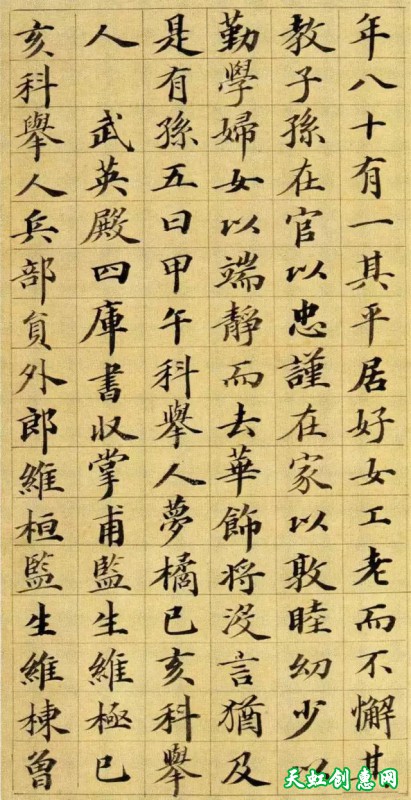 年八十有一其平居好女工老而不懈其
教子孫在官以忠謹在家以敦睦幼少以
勤學婦女以端静而去華飾将没言猶及
是有孫五曰甲午科舉人夢橘已亥科舉
人 武英殿四庫書収掌甫監生維極已
亥科舉人兵部員外郎維桓監生維棟曾
天虹创惠网